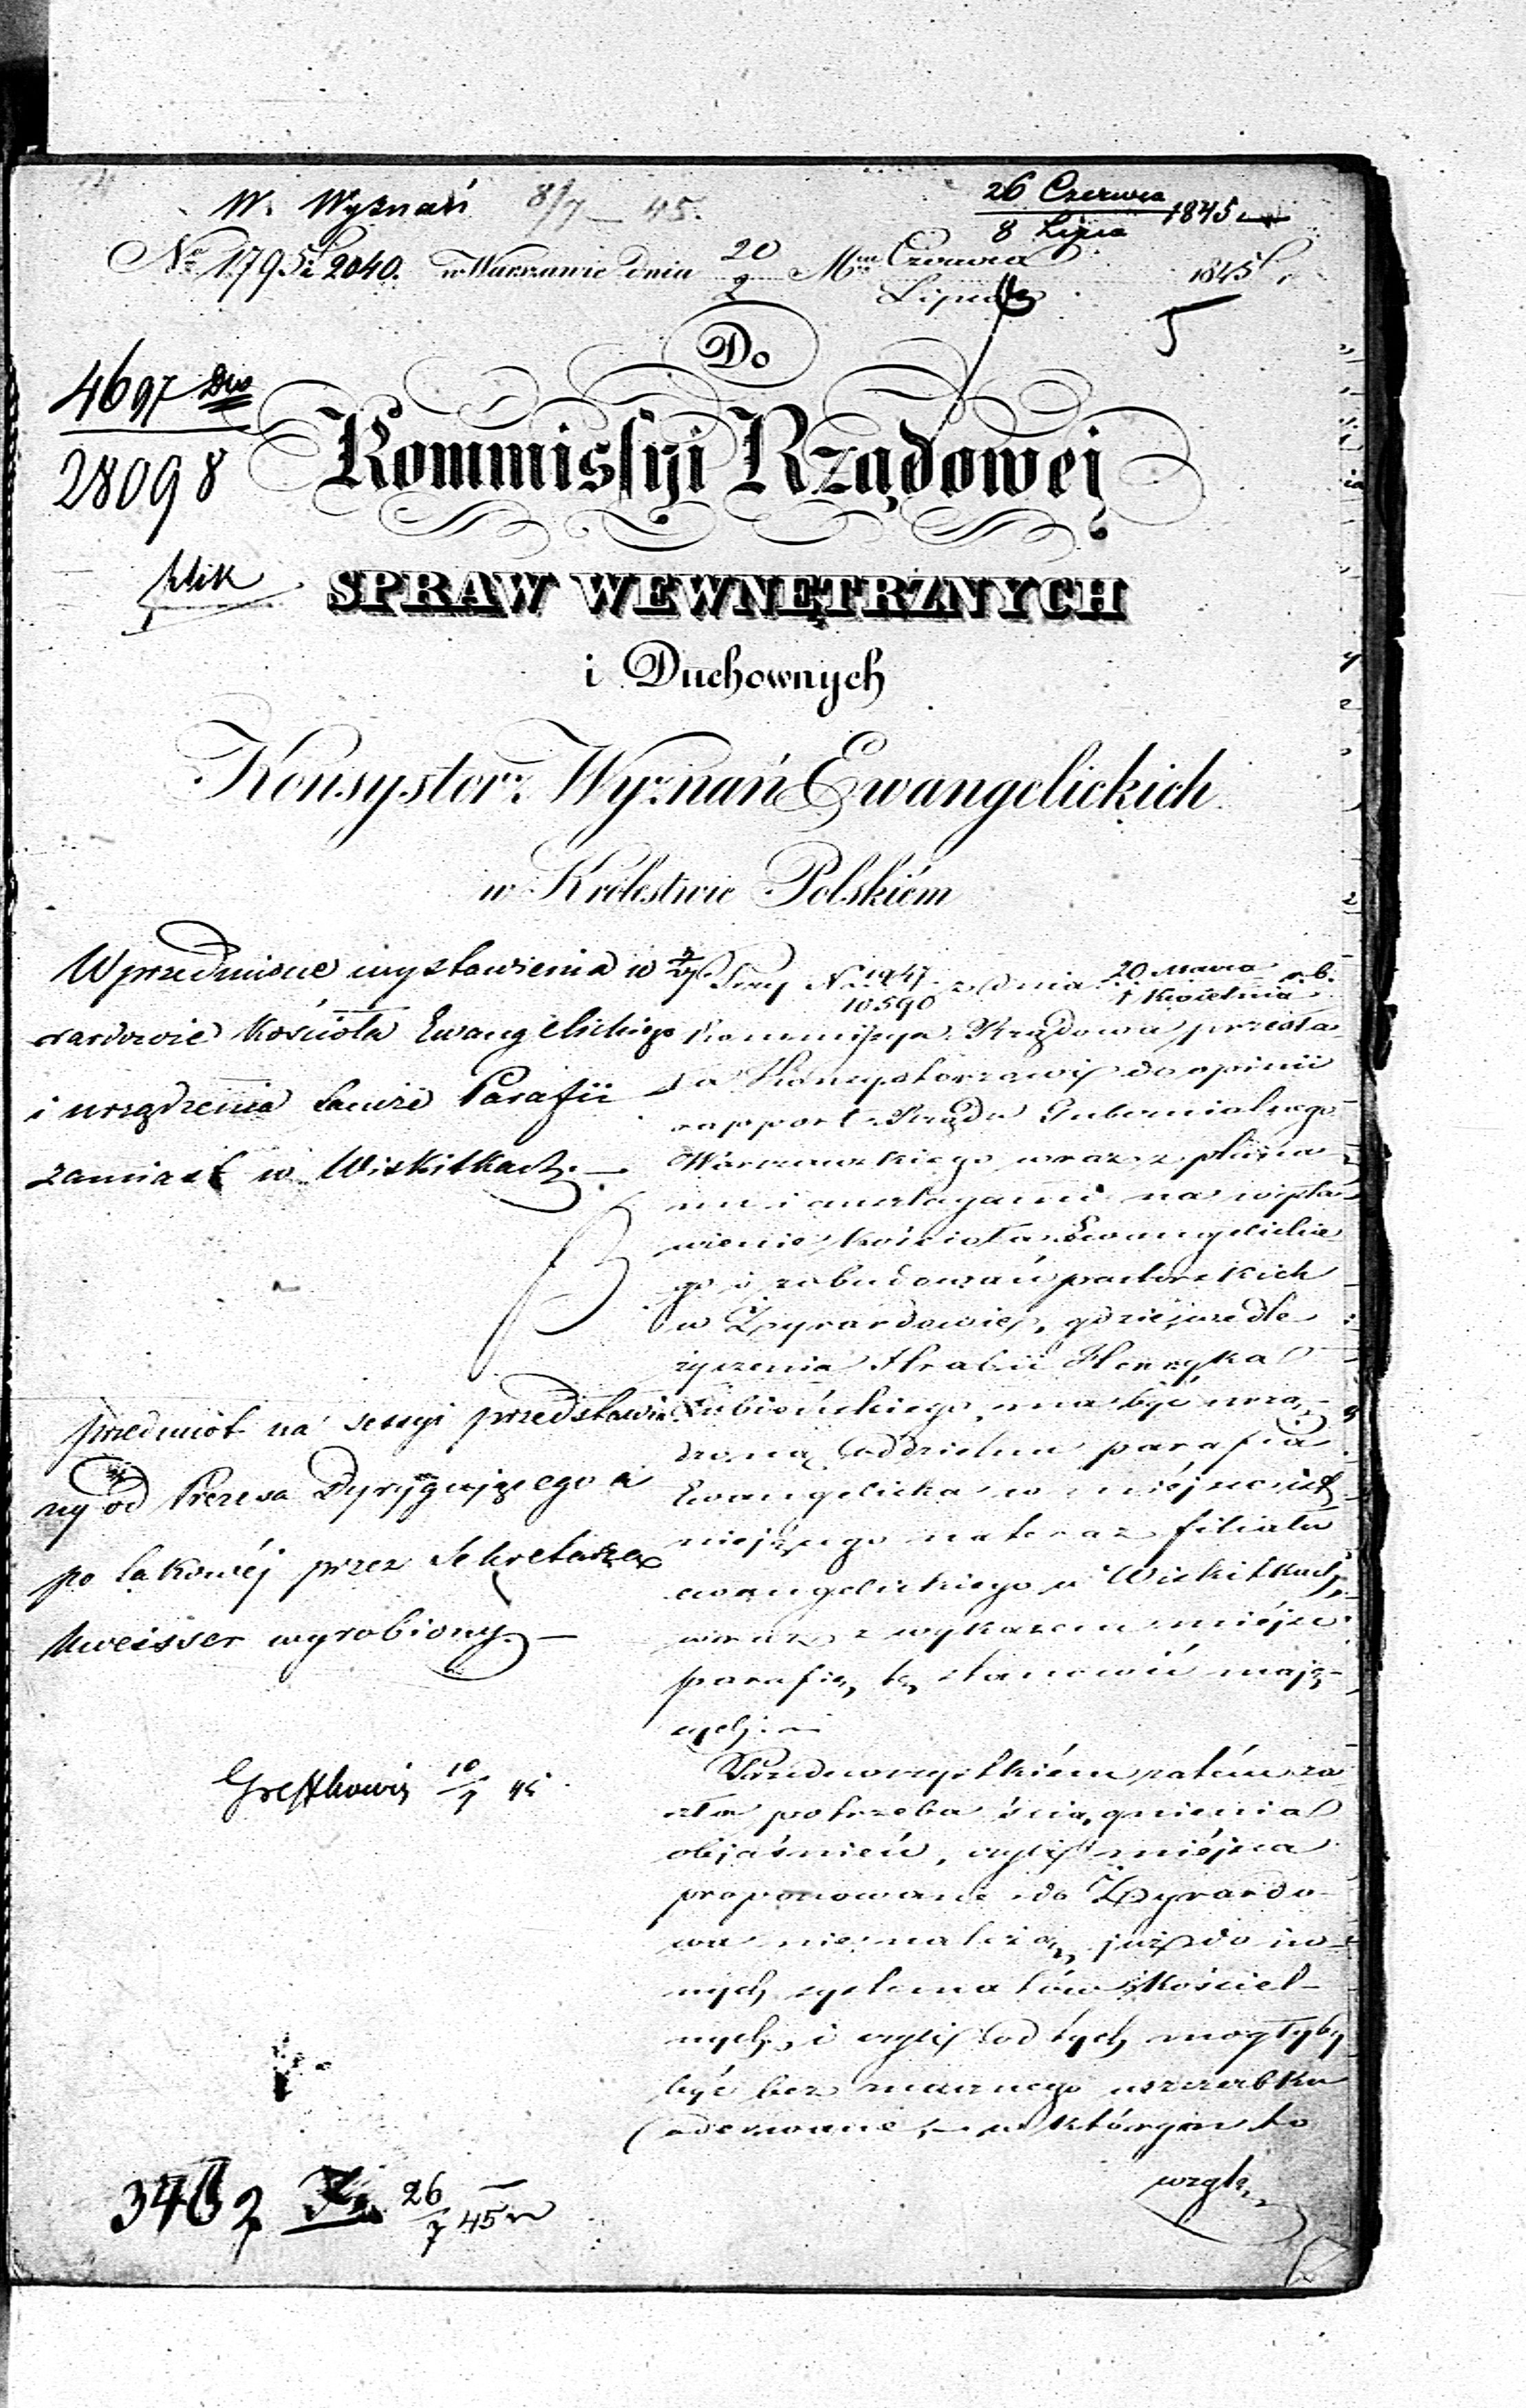 W. Wyznań 8/7 – 45.
26 Czerwca
8 Lipca 1845
No 1795 i 2040. w Warszawie dnia 20 Mca Czerwca 1845 r.
2 Lipca
5
Do
4697
28098
Kommissyi Rządowej
SPRAW WEWNĘTRZNYCH
i Duchownych
Konsystorz Wyznań Ewangelickich
w Królestwie Polskiém
W przedmiocie wystawienia w Ży
rardowie Kościoła Ewangelickiego
i urządzenia tamże Parafii
zamiast w Wiskitkach. —
przedmiot na sessyi przedstawio
ny od Prezesa Dyrygującego a
po takowéj przez Sekretarza
Kweisser wyrobiony. —
10/7 45
3462 26/7 45
Przy No 1947/10590 z dnia 20 Marca / 1 Kwietnia r. b.
Kommissya Rządowa przesła
ła Konsystorzowi do opinii
rapport Rządu Gubernialnego
Warszawskiego wraz z plana
mi i anszlagami na wysta
wienie Kościoła Ewangelickie
go i zabudowań pastorskich
w Żyrardowie, gdzie wedle
życzenia Hrabii Henryka
Łubieńskiego, ma być urzą
dzoną oddzielna parafia
Ewangelicka w miéjsce ist
niejącego na teraz filiału
ewangelickiego w Wiskitkach,
wraz z wykazem miéjsc
parafię tę stanowić mają
cych. —
Przedewszystkiém zatém za
szła potrzeba ściągnienia
objaśnień, czyli miéjsca
proponowane do Żyrardo
wa nie należą już do in
nych systematów Kościel
nych, i czyli od tych mogłyby
być bez znacznego uszczerbku
oderwane, — w którym to
wzglę